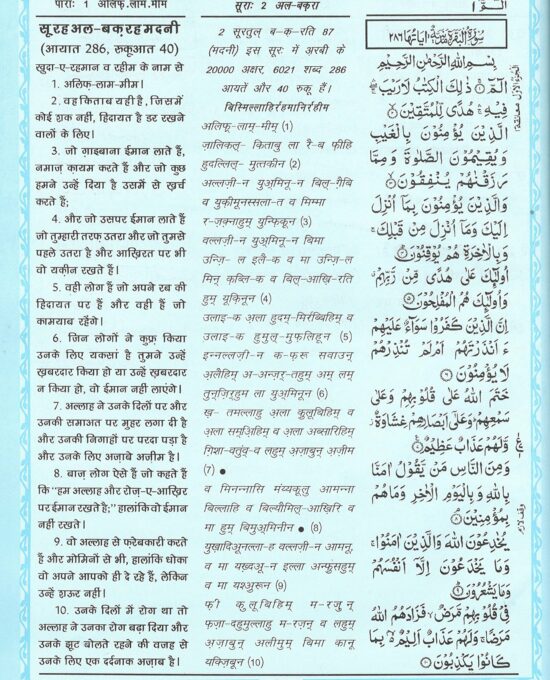 पारा: 1 अलिफ़.लाम.मीम
सूरह अल-बक़रह मदनी
(आयात 286, रुकूआत 40)
खुदा-ए-रहमान व रहीम के नाम से
1. अलिफ़-लाम-मीम।
2. वह किताब यही है, जिसमें
कोई शक नहीं, हिदायत है डर रखने
वालों के लिए।
3. जो ग़ाइबाना ईमान लाते हैं,
नमाज़ क़ायम करते हैं और जो कुछ
हमने उन्हें दिया है उसमें से ख़र्च
करते हैं;
4. और जो उसपर ईमान लाते हैं
जो तुम्हारी तरफ़ उतरा और जो तुमसे
पहले उतरा है और आख़िरत पर भी
वो यक़ीन रखते हैं।
5. वही लोग हैं जो अपने रब की
हिदायत पर हैं और वही हैं जो
कामयाब रहेंगे।
6. जिन लोगों ने कुफ़्र किया
उनके लिए यकसां है तुमने उन्हें
ख़बरदार किया हो या उन्हें ख़बरदार
न किया हो, वो ईमान नहीं लाएंगे।
7. अल्लाह ने उनके दिलों पर और
उनकी समाअत पर मुहर लगा दी है
और उनकी निगाहों पर परदा पड़ा है
और उनके लिए अज़ाबे अज़ीम है।
8. बाज़ लोग ऐसे हैं जो कहते हैं
कि “हम अल्लाह और रोज़-ए-आख़िर
पर ईमान रखते हैं;” हालांकि वो ईमान
नहीं रखते।
9. वो अल्लाह से फ़रेबकारी करते
हैं और मोमिनों से भी, हालांकि धोका
वो अपने आपको ही दे रहे हैं, लेकिन
उन्हें शऊर नहीं।
10. उनके दिलों में रोग था तो
अल्लाह ने उनका रोग बढ़ा दिया और
उनके झूट बोलते रहने की वजह से
उनके लिए एक दर्दनाक अज़ाब है।
सूरा: 2 अल-बक़रा
2 सूरतुल ब-क़-रति 87
(मदनी) इस सूर: में अ़रबी के
20000 अक्षर, 6021 शब्द 286
आयतें और 40 रुकू हैं।
बिस्मिल्लाहिर्रहमानिर्रहीम
अलिफ़्-लाम्-मीम् (1)
ज़ालिकल्- किताबु ला रै-ब फ़ीहि
हुदल्लिल्- मुत्तकीन (2)
अल्लज़ी-न युअ्मिनू-न बिल्-ग़ैबि
व युक़ीमूनस्सला-त व मिम्मा
र-ज़क़्नाहुम् युन्फ़िक़ून (3)
वल्लज़ी-न युअ्मिनू-न बिमा
उन्ज़ि- ल इलै-क व मा उन्ज़ि-ल
मिन् क़ब्लि-क व बिल्-आख़ि-रति
हुम् यूक़िनून (4)
उलाइ-क अ़ला हुदम्-मिर्रब्बिहिम् व
उलाइ-क हुमुल्-मुफ़्लिहून (5)
इन्नल्लज़ी-न क-फ़रू सवाउन्
अ़लैहिम् अ-अन्ज़र्-तहुम् अम् लम्
तुन्ज़िर्हुम ला युअ्मिनून (6)
ख़- तमल्लाहु अ़ला क़ुलूबिहिम् व
अ़ला समअ़िहिम् व अ़ला अब्सारिहिम्
ग़िशा-वतुंव्-व लहुम् अ़ज़ाबुन् अ़ज़ीम
(7) ●
व मिनन्नासि मंय्यक़ूलु आमन्ना
बिल्लाहि व बिल्यौमिल्-आख़िरि व
मा हुम् बिमुअ्मिनीन ● (8)
युख़ादिअूनल्ला-ह वल्लज़ी-न आमनू,
व मा यख़्दअू-न इल्ला अन्फ़ुसहुम्
व मा यश्अुरून (9)
फ़ी क़ुलूबिहिम् म-रज़ुन्
फ़ज़ा-दहुमुल्लाहु म-रज़न् व लहुम्
अ़ज़ाबुन् अलीमुम् बिमा कानू
यक्ज़िबून (10)
الٓمّٓ ١
سُوْرَةُ الْبَقَرَةِ مَدَنِيَّةٌ اٰيَاتُهَا ٢٨٦
بِسْمِ اللّٰهِ الرَّحْمٰنِ الرَّحِيْمِ
الٓمّٓ ۚ ذٰلِكَ الْكِتٰبُ لَا رَيْبَ ۛ
فِيْهِ ۛ هُدًى لِّلْمُتَّقِيْنَ ۙ
الَّذِيْنَ يُؤْمِنُوْنَ بِالْغَيْبِ
وَيُقِيْمُوْنَ الصَّلٰوةَ وَمِمَّا
رَزَقْنٰهُمْ يُنْفِقُوْنَ ۙ
وَالَّذِيْنَ يُؤْمِنُوْنَ بِمَآ اُنْزِلَ
اِلَيْكَ وَمَآ اُنْزِلَ مِنْ قَبْلِكَ ۚ
وَبِالْاٰخِرَةِ هُمْ يُوْقِنُوْنَ ۗ
اُولٰٓئِكَ عَلٰى هُدًى مِّنْ رَّبِّهِمْ ۙ
وَاُولٰٓئِكَ هُمُ الْمُفْلِحُوْنَ
اِنَّ الَّذِيْنَ كَفَرُوْا سَوَآءٌ عَلَيْهِمْ
ءَاَنْذَرْتَهُمْ اَمْ لَمْ تُنْذِرْهُمْ
لَا يُؤْمِنُوْنَ
خَتَمَ اللّٰهُ عَلٰى قُلُوْبِهِمْ وَعَلٰى
سَمْعِهِمْ ۗ وَعَلٰٓى اَبْصَارِهِمْ غِشَاوَةٌ
وَّلَهُمْ عَذَابٌ عَظِيْمٌ
وَمِنَ النَّاسِ مَنْ يَّقُوْلُ اٰمَنَّا
بِاللّٰهِ وَبِالْيَوْمِ الْاٰخِرِ وَمَا هُمْ
بِمُؤْمِنِيْنَ ۘ
يُخٰدِعُوْنَ اللّٰهَ وَالَّذِيْنَ اٰمَنُوْا ۚ
وَمَا يَخْدَعُوْنَ اِلَّآ اَنْفُسَهُمْ
وَمَا يَشْعُرُوْنَ ۗ
فِيْ قُلُوْبِهِمْ مَّرَضٌ ۙ فَزَادَهُمُ اللّٰهُ
مَرَضًا ۚ وَلَهُمْ عَذَابٌ اَلِيْمٌ ۙ بِمَا
كَانُوْا يَكْذِبُوْنَ